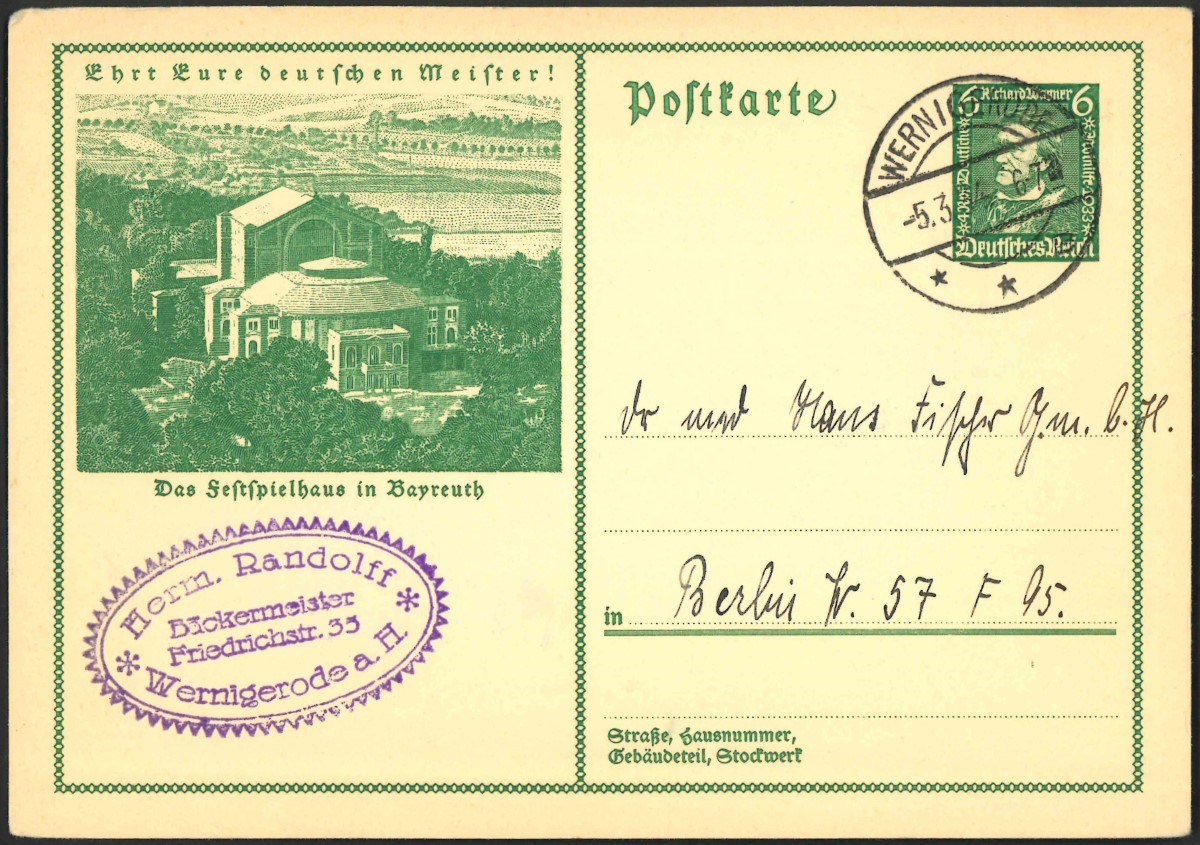 Ehrt Eure deutschen Meister!
Das Festspielhaus in Bayreuth
Herm. Randolff
Bäckermeister
Friedrichstr. 33
Wernigerode a. H.
Postkarte
6 Richard Wagner 6
Deutsches Reich
WERNIGERODE
-5.3. 6-7
Dr med Hans Fischer G.m.b.H.
in Berlin W. 57 F 95.
Straße, Hausnummer,
Gebäudeteil, Stockwerk